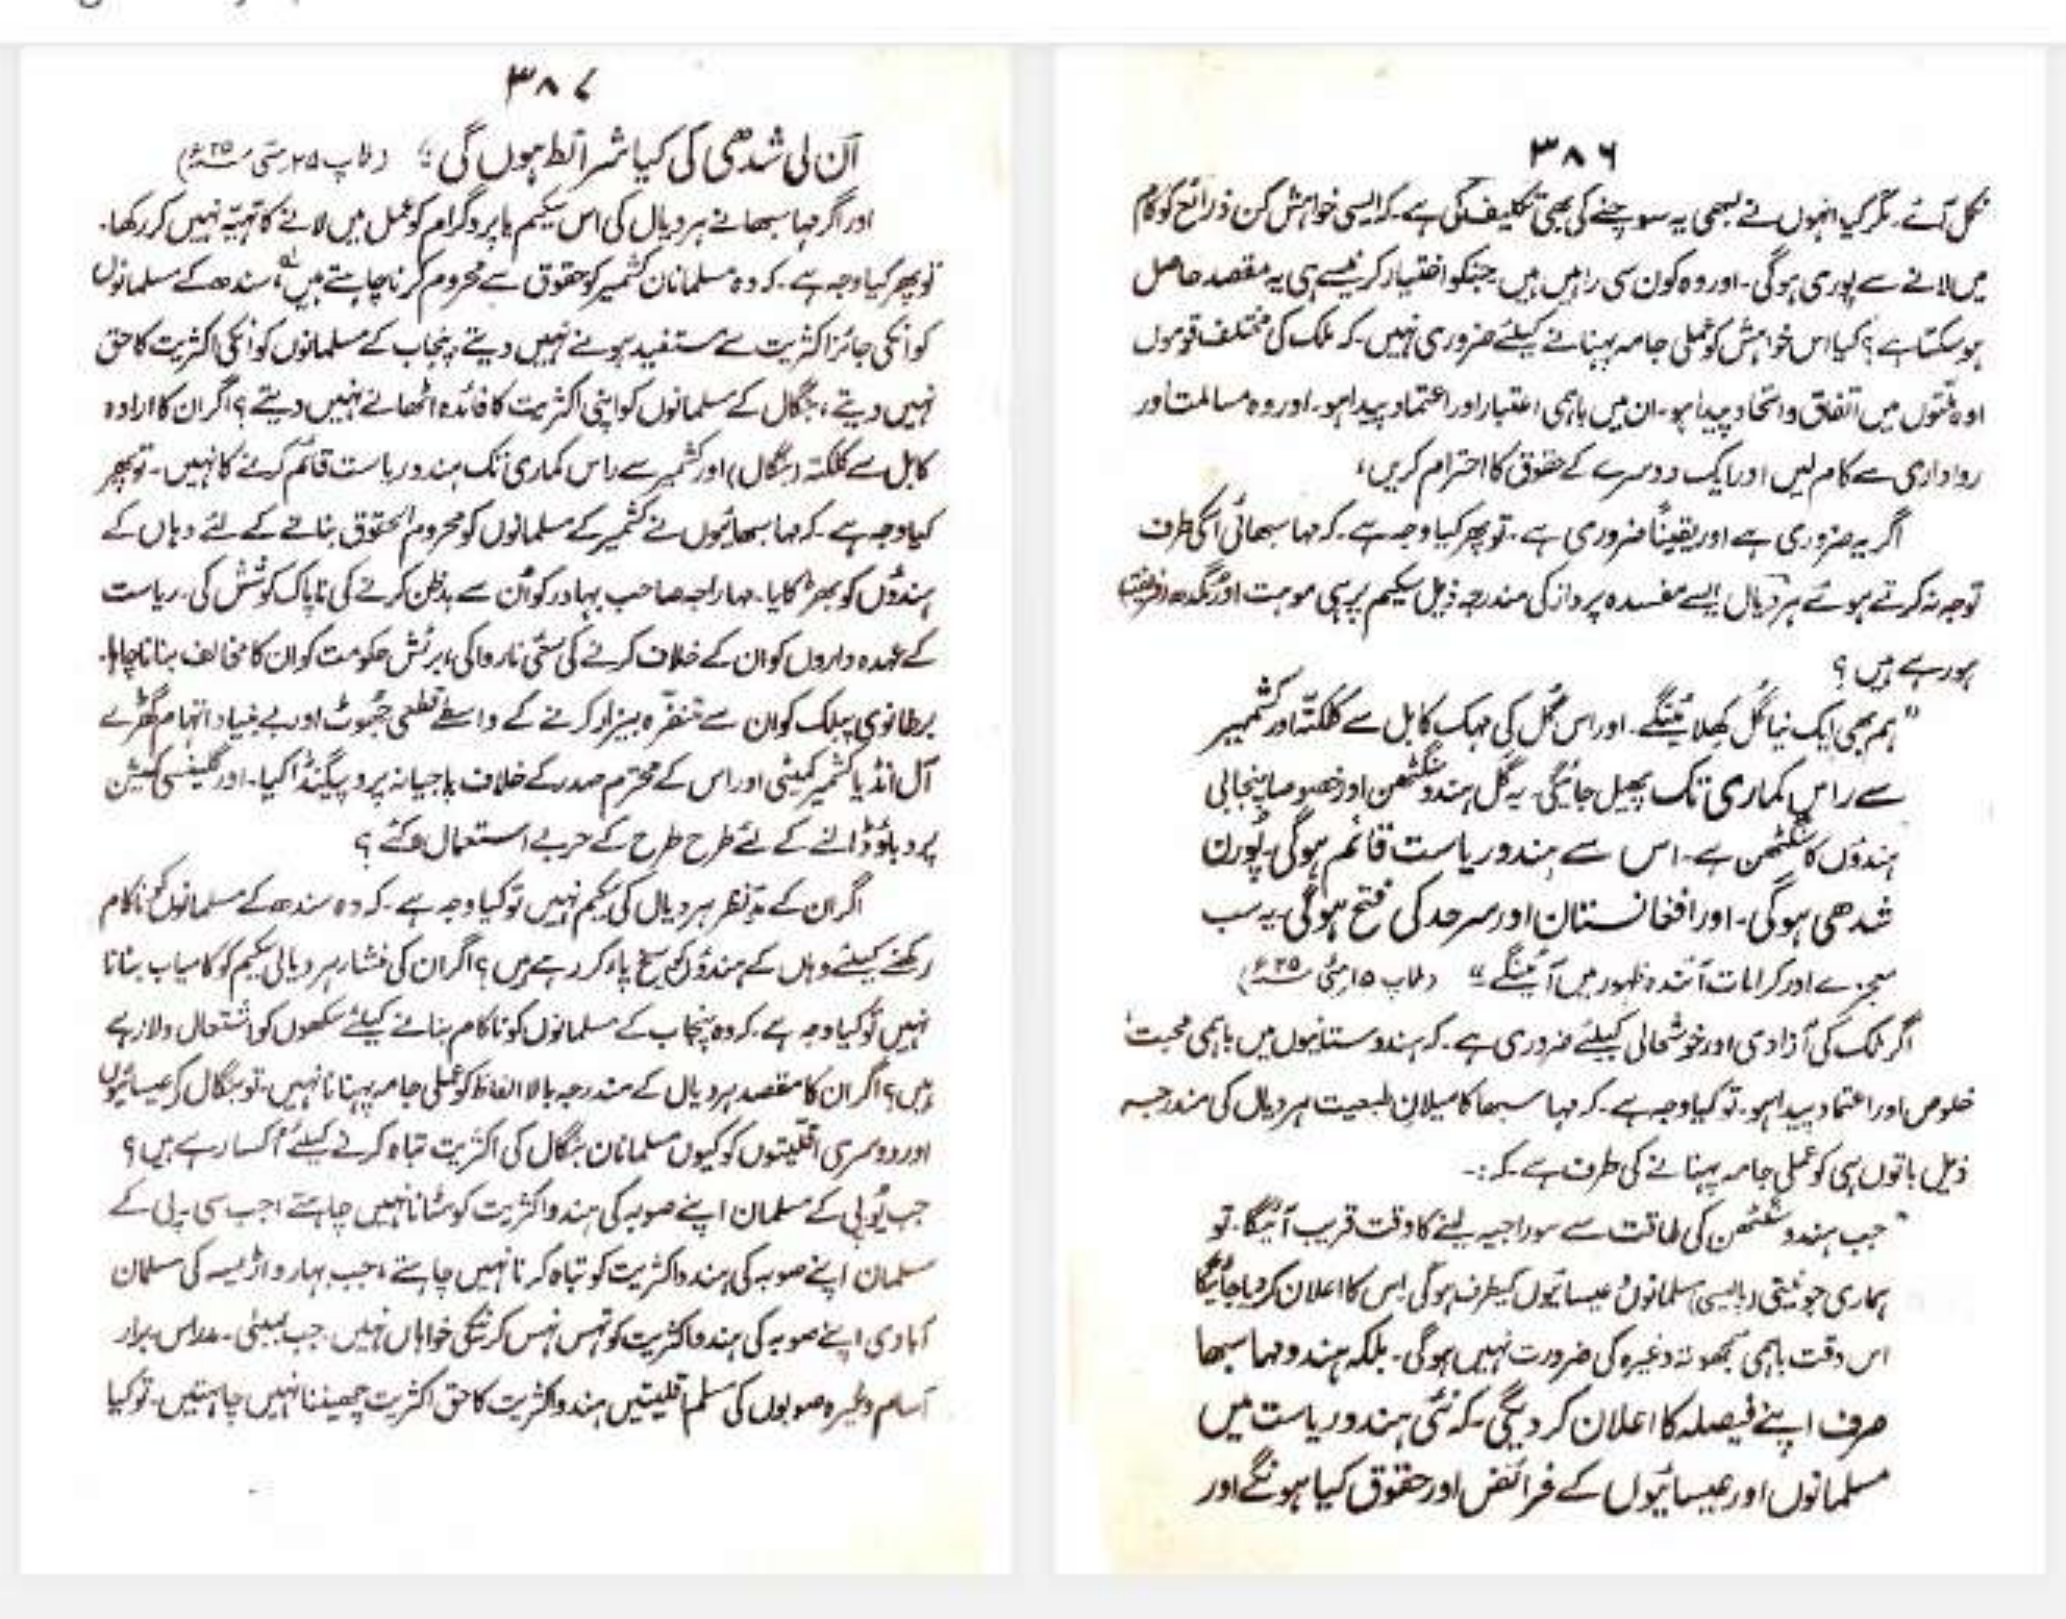 ۳۸۶
نکل آئے۔ مگر کیا انہوں نے کبھی یہ سوچنے کی بھی تکلیف کی ہے۔ کہ ایسی خواہش کن ذرائع کو کام
میں لانے سے پوری ہوگی۔ اور وہ کون سی راہیں ہیں جنکو اختیار کرنیسے ہی یہ مقصد حاصل
ہو سکتا ہے؟ کیا اس خواہش کو عملی جامہ پہنانے کیلئے ضروری نہیں۔ کہ ملک کی مختلف قوموں
اور ملتوں میں اتفاق و اتحاد پیدا ہو۔ ان میں باہمی اعتبار اور اعتماد پیدا ہو۔ اور وہ مسالمت اور
رواداری سے کام لیں اور ایک دوسرے کے حقوق کا احترام کریں،
اگر یہ ضروری ہے اور یقیناً ضروری ہے۔ تو پھر کیا وجہ ہے۔ کہ مہا سبھائی اسکی طرف
توجہ نہ کرتے ہوئے ہردیال ایسے مفسدہ پرداز کی مندرجہ ذیل سکیم پر ہی موہت اور گدھ (فریفتہ)
ہو رہے ہیں؟
"ہم بھی ایک نیا گل کھلائینگے۔ اور اس گل کی مہک کابل سے کلکتہ اور کشمیر
سے راس کماری تک پھیل جائیگی۔ یہ گل ہندو سنگٹھن اور خصوصاً پنجابی
ہندؤں کا سنگٹھن ہے۔ اس سے ہندو ریاست قائم ہوگی۔ پورن
شدھی ہوگی۔ اور افغانستان اور سرحد کی فتح ہوگی۔ یہ سب
معجزے اور کرامات آئندہ ظہور میں آئینگے" (ملاپ ۱۵ مئی ۲۵ء)
اگر ملک کی آزادی اور خوشحالی کیلئے ضروری ہے۔ کہ ہندوستانیوں میں باہمی محبت
خلوص اور اعتماد پیدا ہو۔ تو کیا وجہ ہے۔ کہ مہا سبھا کا میلان طبعیت ہردیال کی مندرجہ
ذیل باتوں ہی کو عملی جامہ پہنانے کی طرف ہے کہ:۔
"جب ہندو سنگٹھن کی طاقت سے سوراجیہ لینے کا وقت قریب آئیگا۔ تو
ہماری جو نیتی (پالیسی) مسلمانوں عیسائیوں کیطرف ہوگی۔ اس کا اعلان کر دیا جائیگا
اس وقت باہمی سمجھوتہ وغیرہ کی ضرورت نہیں ہوگی۔ بلکہ ہندو مہا سبھا
صرف اپنے فیصلہ کا اعلان کر دیگی۔ کہ نئی ہندو ریاست میں
مسلمانوں اور عیسائیوں کے فرائض اور حقوق کیا ہونگے اور
۳۸۷
ان کی شدھی کی کیا شرائط ہوں گی" (ملاپ ۲۵ مئی ۲۵ء)
اور اگر مہا سبھا نے ہردیال کی اس سکیم یا پروگرام کو عمل میں لانے کا تہیّہ نہیں کر رکھا۔
تو پھر کیا وجہ ہے۔ کہ وہ مسلمانان کشمیر کو حقوق سے محروم کرنا چاہتے ہیں، سندھ کے مسلمانوں
کو انکی جائز اکثریت سے مستفید ہونے نہیں دیتے، پنجاب کے مسلمانوں کو انکی اکثریت کا حق
نہیں دیتے، بنگال کے مسلمانوں کو اپنی اکثریت کا فائدہ اٹھانے نہیں دیتے؟ اگر ان کا ارادہ
کابل سے کلکتہ (بنگال) اور کشمیر سے راس کماری تک ہندو ریاست قائم کرنے کا نہیں۔ تو پھر
کیا وجہ ہے۔ کہ مہا سبھائیوں نے کشمیر کے مسلمانوں کو محروم الحقوق بنانے کے لئے وہاں کے
ہندؤں کو بھڑکایا۔ مہاراجہ صاحب بہادر کو ان سے بدظن کرنے کی ناپاک کوشش کی۔ ریاست
کے عہدہ داروں کو ان کے خلاف کرنے کی سعی ناروا کی، برٹش حکومت کو ان کا مخالف بنانا چاہا۔
برطانوی پبلک کو ان سے متنفر و بیزار کرنے کے واسطے قطعی جھوٹ اور بے بنیاد اتہام گھڑے
آل انڈیا کشمیر کمیٹی اور اس کے محترم صدر کے خلاف پاجیانہ پروپیگنڈا کیا۔ اور گلینسی کمیشن
پر دباؤ ڈالنے کے لئے طرح طرح کے حربے استعمال کئے؟
اگر ان کے مدِّ نظر ہردیال کی سکیم نہیں تو کیا وجہ ہے۔ کہ وہ سندھ کے مسلمانوں کو ناکام
رکھنے کیلئے وہاں کے ہندؤں کو سیخ پا کر رہے ہیں؟ اگر ان کی منشاء ہردیالی سکیم کو کامیاب بنانا
نہیں تو کیا وجہ ہے۔ کہ وہ پنجاب کے مسلمانوں کو ناکام بنانے کیلئے سکھوں کو اشتعال دلا رہے
ہیں؟ اگر ان کا مقصد ہردیال کے مندرجہ بالا الفاظ کو عملی جامہ پہنانا نہیں۔ تو بنگال کے عیسائیوں
اور دوسری اقلیتوں کو کیوں مسلمانان بنگال کی اکثریت تباہ کرنے کیلئے اکسا رہے ہیں؟
جب یو پی کے مسلمان اپنے صوبہ کی ہندو اکثریت کو مٹانا نہیں چاہتے، جب سی۔ پی کے
مسلمان اپنے صوبہ کی ہندو اکثریت کو تباہ کرنا نہیں چاہتے، جب بہار و اڑیسہ کی مسلمان
آبادی اپنے صوبہ کی ہندو اکثریت کو تہس نہس کرنیکی خواہاں نہیں۔ جب بمبئی۔ مدراس برار
آسام وغیرہ صوبوں کی مسلم اقلیتیں ہندو اکثریت کا حق اکثریت چھیننا نہیں چاہتیں۔ تو کیا